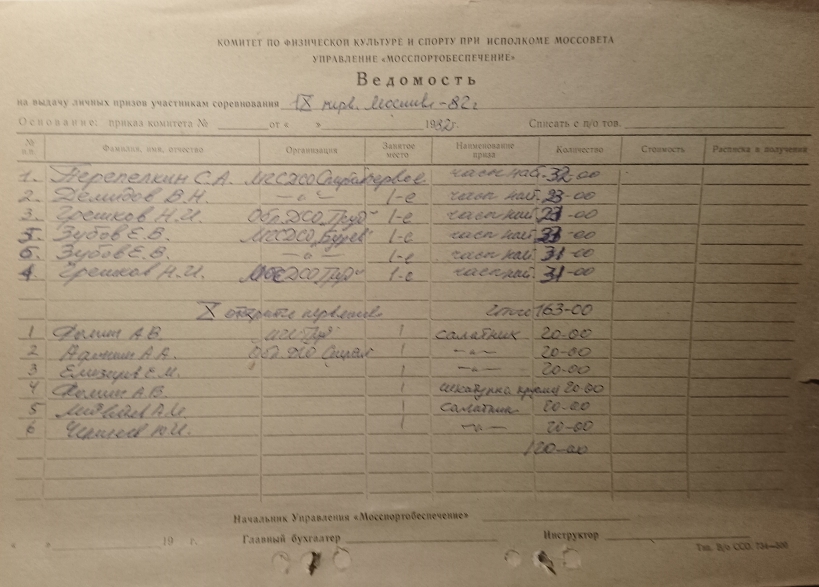 КОМИТЕТ ПО ФИЗИЧЕСКОЙ КУЛЬТУРЕ И СПОРТУ ПРИ ИСПОЛКОМЕ МОССОВЕТА
УПРАВЛЕНИЕ «МОССПОРТОБЕСПЕЧЕНИЕ»
Ведомость
на выдачу личных призов участникам соревнования IX перв. Москвы-82г
Основание: приказ комитета № от « » 1982г. Списать с п/о тов.
№ п.п. Фамилия, имя, отчество Организация Занятое место Наименование приза Количество Стоимость Расписка в получении
1. Перепелкин С.А. МГСДСО Спартак первое часы нас. 32-00
2. Демидов В.Н. —"— 1-е часы нас. 23-00
3. Грешков Н.И. Обл.ДСО "Труд" 1-е часы нас. 23-00
5. Зубов Е.В. МГСДСО 1-е часы нас. -00
6. Зубов Е.В. —"— 1-е часы нас. 31-00
4. Грешков Н.И. ДСО "Труд" 1-е часы нас. 31-00
X открытое первенство итого 163-00
1 Фомин А.В. 1 салатник 20-00
2 А.А. Обл. ДСО Спартак 1 —"— 20-00
3 Е.М. 1 —"— 20-00
4 Фомин А.В. 1 шкатулка 20-00
5 А.И. 1 салатник 20-00
6 Ю.И. 1 —"— 20-00
120-00
Начальник Управления «Мосспортобеспечение»
« » 19 г. Главный бухгалтер Инструктор
Тип. В/о ССО.